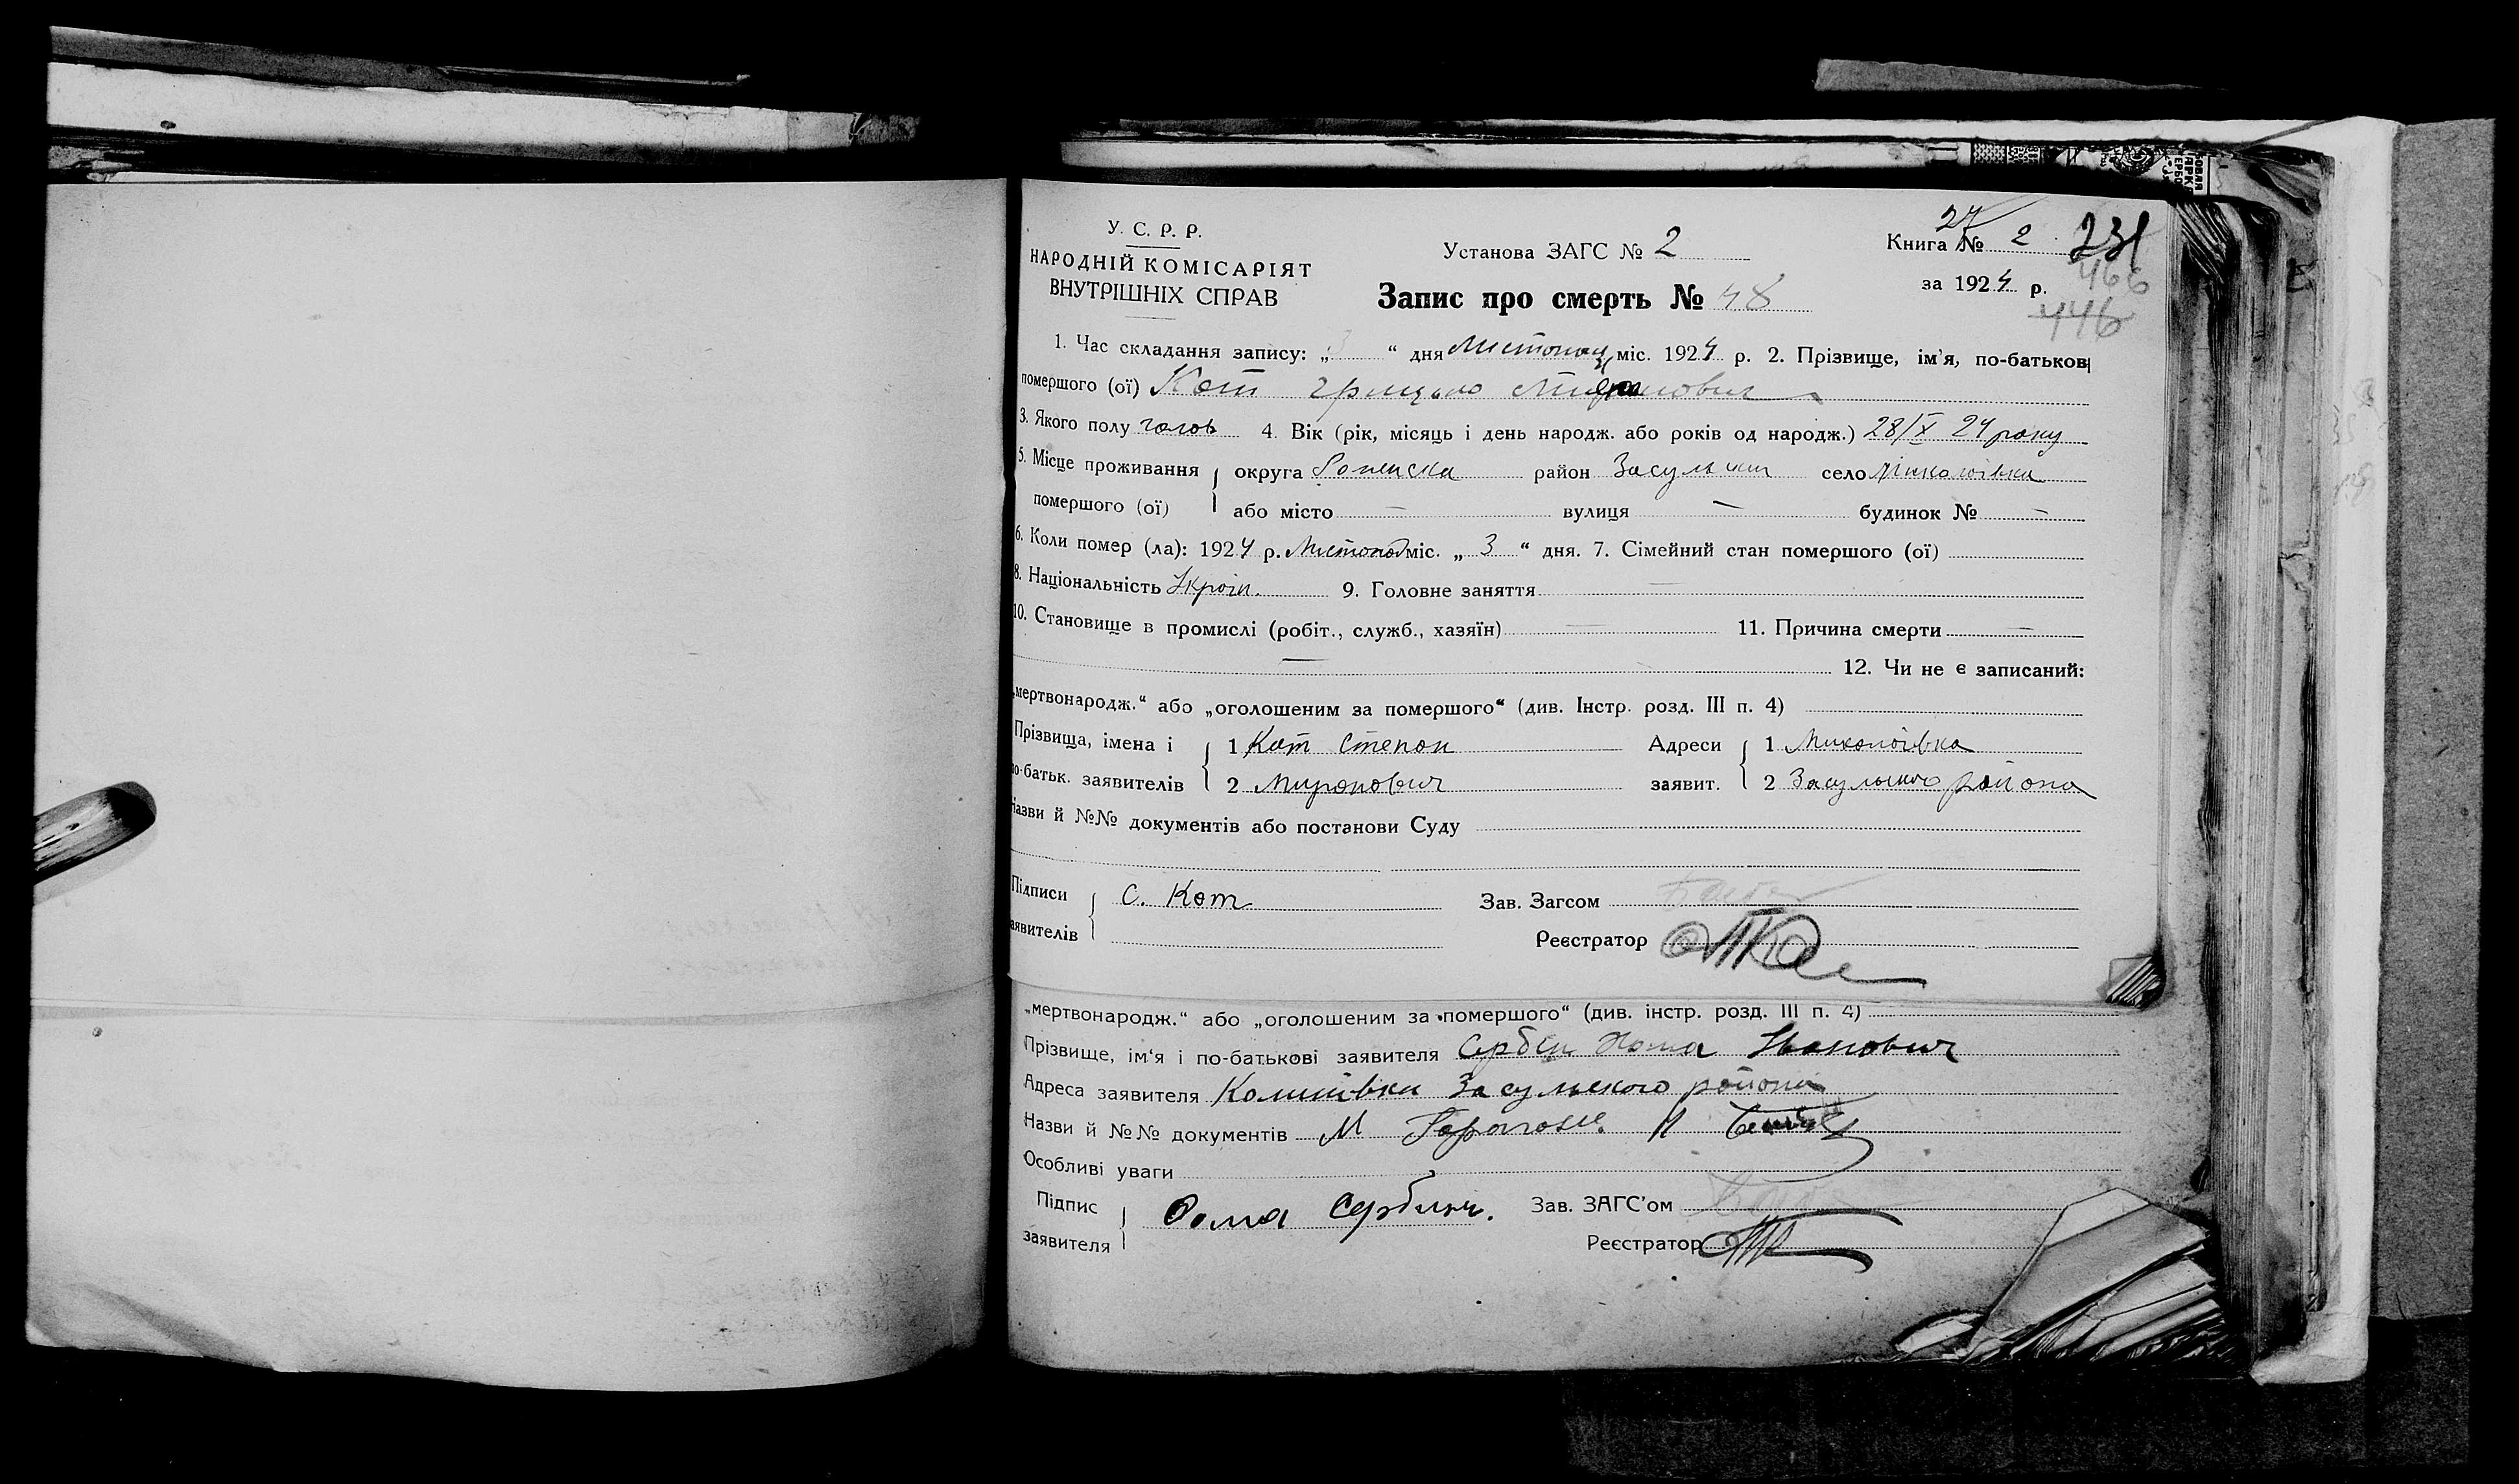 У. С. Р. Р.
НАРОДНІЙ КОМІСАРІЯТ
ВНУТРІШНІХ СПРАВ
Установа ЗАГС № 2
Запис про смерть № 48
Книга № 2
27
231
за 1924 р.
466
446
1. Час складання запису: „3“ дня Листопад міс. 1924 р. 2. Прізвище, ім'я, по-батькові
помершого (ої) Кот Грицько
3. Якого полу чолов 4. Вік (рік, місяць і день народж. або років од народж.) 28/X 24 року
5. Місце проживання помершого (ої) округа Роменська район Засульськ село Миколаївка
або місто — вулиця — будинок № —
6. Коли помер (ла): 1924 р. Листопад міс. „3“ дня. 7. Сімейний стан помершого (ої)
8. Національність Україн. 9. Головне заняття —
10. Становище в промислі (робіт., служб., хазяїн) — 11. Причина смерти —
— 12. Чи не є записаний:
„мертвонародж.“ або „оголошеним за помершого“ (див. Інстр. розд. III п. 4)
Прізвища, імена і по-батьк. заявителів 1 Кот Степан Адреси заявит. 1 Миколаївка
2 Миронович 2 Засульського района
Назви й №№ документів або постанови Суду
Підписи заявителів С. Кот Зав. Загсом
Реєстратор
„мертвонародж.“ або „оголошеним за помершого“ (див. інстр. розд. III п. 4)
Прізвище, ім'я і по-батькові заявителя Сербин Хома Іванович
Адреса заявителя Засульского района
Назви й №№ документів М
Особливі уваги
Підпис заявителя Фома Сербин. Зав. ЗАГС'ом
Реєстратор